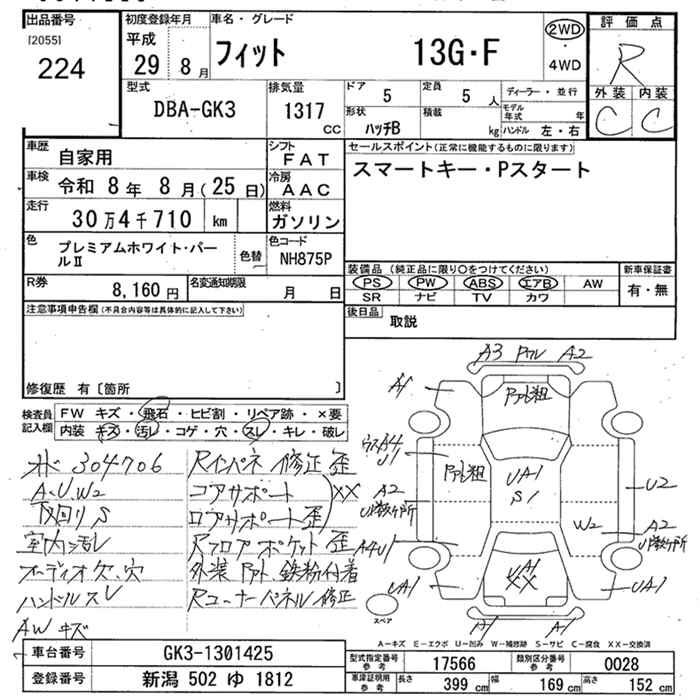 出品番号
[2055]
224
初度登録年月
平成
29 8月
車名・グレード
フィット 13G・F
2WD
・
4WD
評価点
R
外装 内装
C C
型式
DBA-GK3
排気量
1317
CC
ドア
5
定員
5 人
形状
ハッチB
積載
kg
ディーラー・並行
モデル年式 年
ハンドル 左・右
車歴
自家用
シフト
FAT
車検
令和 8年 8月(25日)
冷房
AAC
走行
30万4千710 km
燃料
ガソリン
色
プレミアムホワイト・パールⅡ
色替
色コード
NH875P
R券
8,160円
名変通知期限
月 日
セールスポイント(正常に機能するものに限ります)
スマートキー・Pスタート
装備品(純正品に限り○をつけてください)
PS PW ABS エアB AW
SR ナビ TV カワ
新車保証書
有・無
後日品
取説
注意事項申告欄(不具合内容等は具体的に記入して下さい)
修復歴 有〔箇所 〕
検査員記入欄
FW キズ・飛石・ヒビ割・リペア跡・×要
内装 キズ・汚レ・コゲ・穴・スレ・キレ・破レ
304706
A.U.W2
下回りS
室内汚レ
オーディオ欠、穴
ハンドルスレ
AWキズ
Rインパネ 修正 歪
コアサポート
ロアサポート 歪
XX
Rフロアポケット 歪
外装 鉄粉付着
Rコーナーパネル 修正
A3 A2
A1
A4
U1
A2
UA1
S1
U2
W2
A2
A4U1
UA1
UA1
XX
UA1
A1 A1
スペア
A-キズ E-エクボ U-凹み W-補修跡 S-サビ C-腐食 XX-交換済
車台番号
GK3-1301425
登録番号
新潟 502 ゆ 1812
型式指定番号
参考
17566
類別区分番号
参考
0028
車庫証明用
参考
長さ
399 cm
幅
169 cm
高さ
152 cm